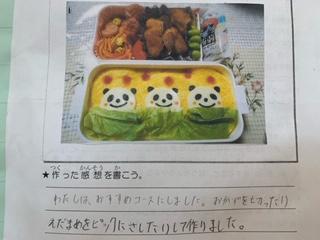 つく かんそう か
★作った感想を書こう。
わたしは、おすすめコースにしました。おかずを切ったり
えだまめをピックにさしたりして作りました。